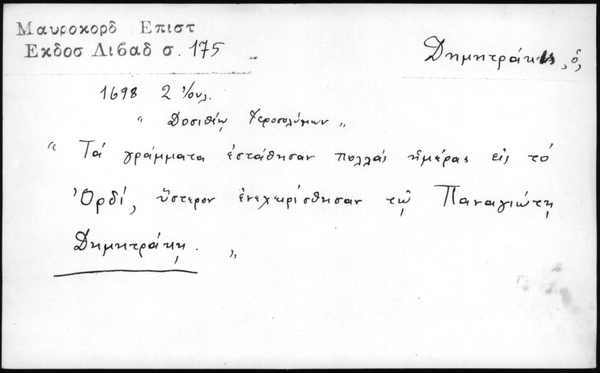 Μαυροκορδ Επιστ
Εκδοσ Λιβαδ σ. 175
Δημητράκης, ὁ,
1698 2 Ἰουλ.
„ Δοσιθέῳ Ἱεροσολύμων „
“ Τά γράμματα ἐστάθησαν πολλάς ἡμέρας εἰς τό
Ὀρδί, ὕστερον ἐνεχειρίσθησαν τῷ Παναγιώτῃ
Δημητράκῃ. „